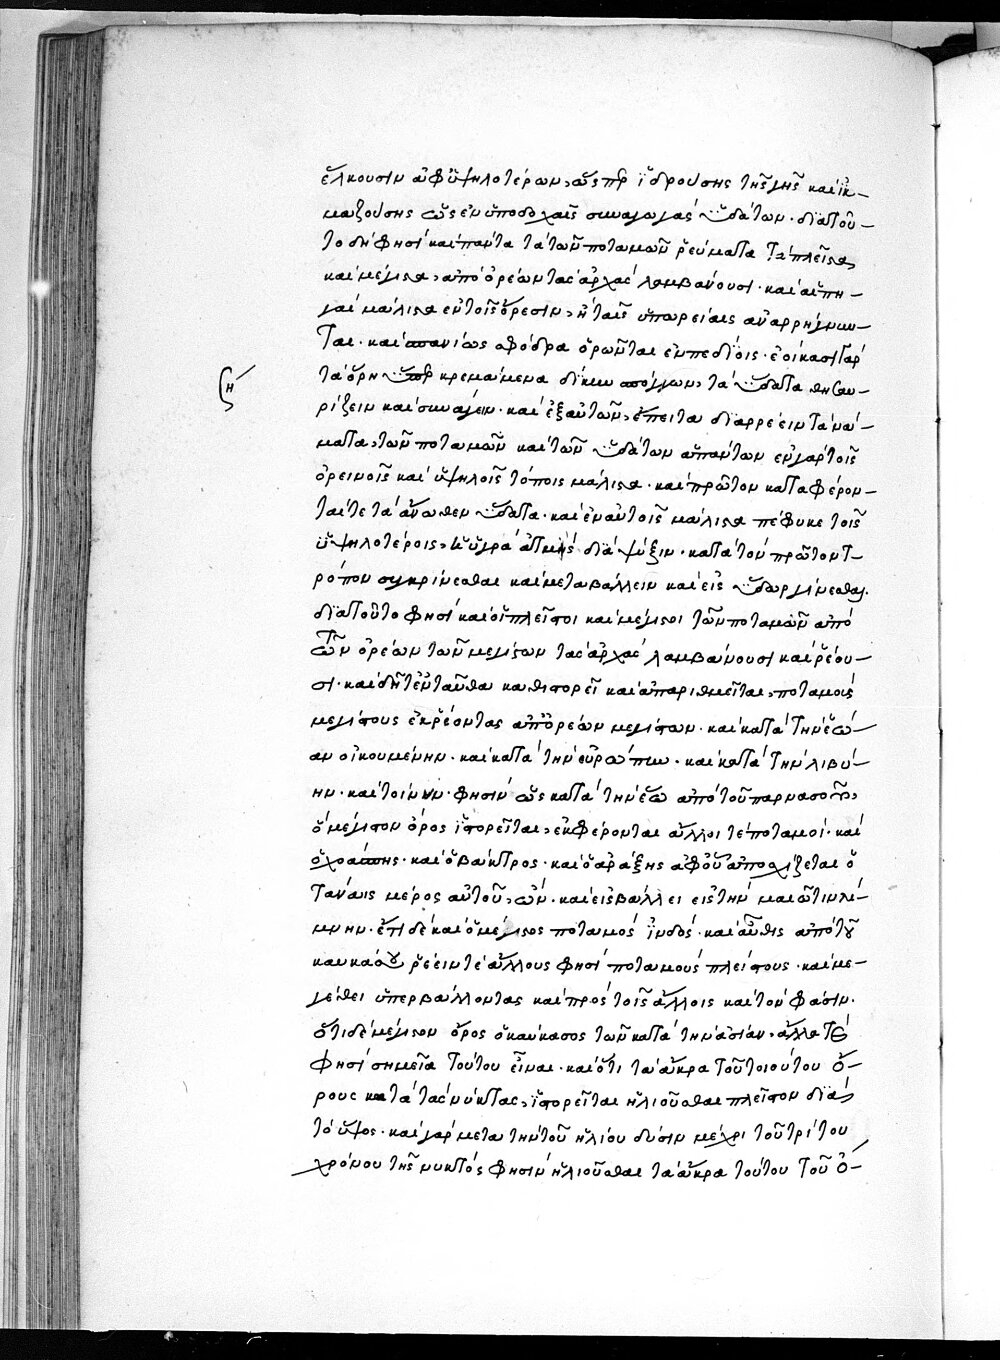 ἕλκουσιν ἀφ' ὑψηλοτέρων, ὥσπερ ἱδρούσης τῆς γῆς καὶ ἰκ-
μαζούσης ὡς ἐν ὑποδοχαῖς συναγωγὰς ὑδάτων· διατοῦ-
το δή φησι καὶ πάντα τὰ τῶν ποταμῶν ῥεύματα τὰ πλεῖστα,
καὶ μέγιστα, ἀπὸ ὀρέων τὰς ἀρχὰς λαμβάνουσι· καὶ αἱ πη-
γαὶ μάλιστα ἐν τοῖς ὄρεσιν, ἢ ταῖς ὑπωρείαις ἀναρρήγνυν-
ται· καὶ σπανίως σφόδρα ὁρῶνται ἐν πεδίοις· ἐοίκασι γὰρ
τὰ ὄρη ὕπερ κρεμάμενα δίκην σπόγγων, τὰ ὕδατα θησαυ-
ρίζειν καὶ συνάγειν· καὶ ἐξαυτῶν, ἔπειτα διαρρέειν τὰ νά-
ματα, τῶν ποταμῶν καὶ τῶν ὑδάτων ἁπάντων ἐν γὰρ τοῖς
ὀρεινοῖς καὶ ὑψηλοῖς τόποις μάλιστα· καὶ πρῶτον καταφέρον-
ται τε τὰ ἄνωθεν ὕδατα· καὶ ἐν αὐτοῖς μάλιστα πέφυκε τοῖς
ὑψηλοτέροις, ἡ ὑγρὰ ἀτμὶς διὰ ψύξιν· κατὰ τὸν πρῶτον τ-
ρόπον συγκρίνεσθαι καὶ μεταβάλλειν καὶ εἰς ὕδωρ γίνεσθαι.
διατοῦτο φησὶ καὶ οἱ πλεῖστοι καὶ μέγιστοι τῶν ποταμῶν ἀπὸ
τῶν ὀρέων τῶν μεγίστων τὰς ἀρχὰς λαμβάνουσι καὶ ῥέου-
σι· καὶ δῆτ' ἐνταῦθα καθιστορεῖ καὶ ἀπαριθμεῖται, ποταμοὺς
μεγίστους ἐκρέοντας ἀπ' ὀρέων μεγίστων· καὶ κατὰ τὴν ἑῴ-
αν οἰκουμένην· καὶ κατὰ τὴν εὐρώπην· καὶ κατὰ τὴν λιβύ-
ην· καὶ τοίνυν· φησὶν ὡς κατὰ τὴν ἕω ἀπὸ τοῦ παρνασοῦ,
ὃ μέγιστον ὄρος ἱστορεῖται, ἐκφέρονται ἄλλοι τὲ ποταμοί· καὶ
ὁ χοάσπης· καὶ ὁ βάκτρος· καὶ ὁ ἀράξης ἀφ' οὗ ἀποσχίζεται ὁ
τάναϊς μέρος αὐτοῦ, ὤν· καὶ εἰσβάλλει εἰς τὴν μαιῶτιν λί-
μνην· ἔτι δὲ καὶ ὁ μέγιστος ποταμὸς ἰνδός· καὶ αὖθις ἀπὸ τοῦ
καυκάσου ῥέειν τὲ ἄλλους φησὶ ποταμοὺς πλείστους· καὶ με-
γέθει ὑπερβάλλοντας καὶ πρὸς τοῖς ἄλλοις καὶ τὸν φᾶσιν·
ὅτι δὲ μέγιστον ὄρος ὁ καύκασος τῶν κατὰ τὴν ἀσίαν· ἄλλα τέ
φησι σημεῖα τούτου εἶναι· καὶ ὅτι τὰ ἄκρα τοῦ τοιούτου ὄ-
ρους κατὰ τὰς νύκτας, ἱστορεῖται ἡλιοῦσθαι πλεῖστον διὰ
τὸ ὕψος· καὶ γὰρ μετὰ τὴν τοῦ ἡλίου δύσιν μέχρι τοῦ τρίτου
χρόνου τῆς νυκτός φησιν ἡλιοῦσθαι τὰ ἄκρα τούτου τοῦ ὄ-